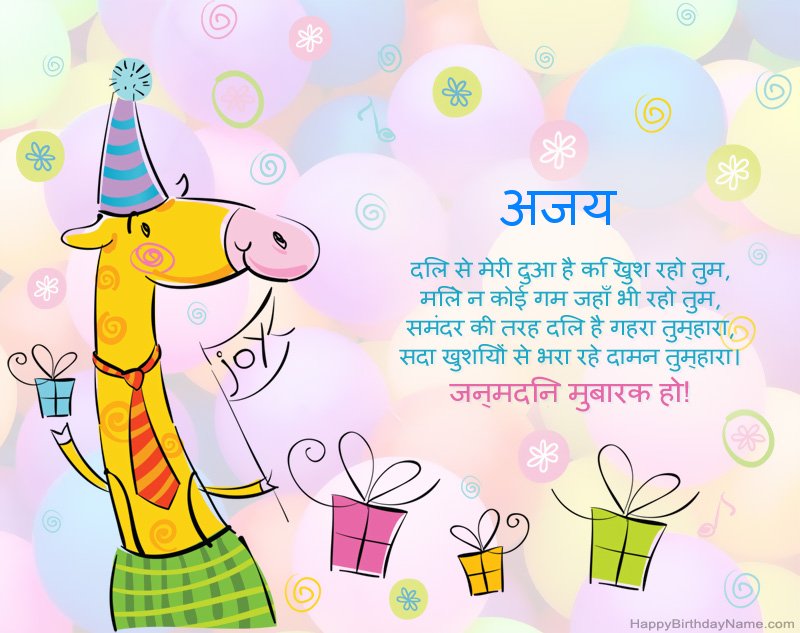 अजय
दिल से मेरी दुआ है कि खुश रहो तुम,
मिले न कोई गम जहाँ भी रहो तुम,
समंदर की तरह दिल है गहरा तुम्हारा,
सदा खुशियों से भरा रहे दामन तुम्हारा।
जन्मदिन मुबारक हो!
joy
HappyBirthdayName.com